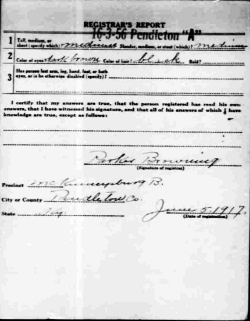 REGISTRAR'S REPORT
16-3-56 Pendleton "A"
1 Tall, medium, or short (specify which)? medium Slender, medium, or stout (which)? medium
2 Color of eyes? dark brown Color of hair? black Bald?
3 Has person lost arm, leg, hand, foot, or both eyes, or is he otherwise disabled (specify)?
I certify that my answers are true, that the person registered has read his own answers, that I have witnessed his signature, and that all of his answers of which I have knowledge are true, except as follows:
Browning
(Signature of registrar)
Precinct B.
City or County Pendleton Co.
State Ky
June 5 1917.
(Date of registration)